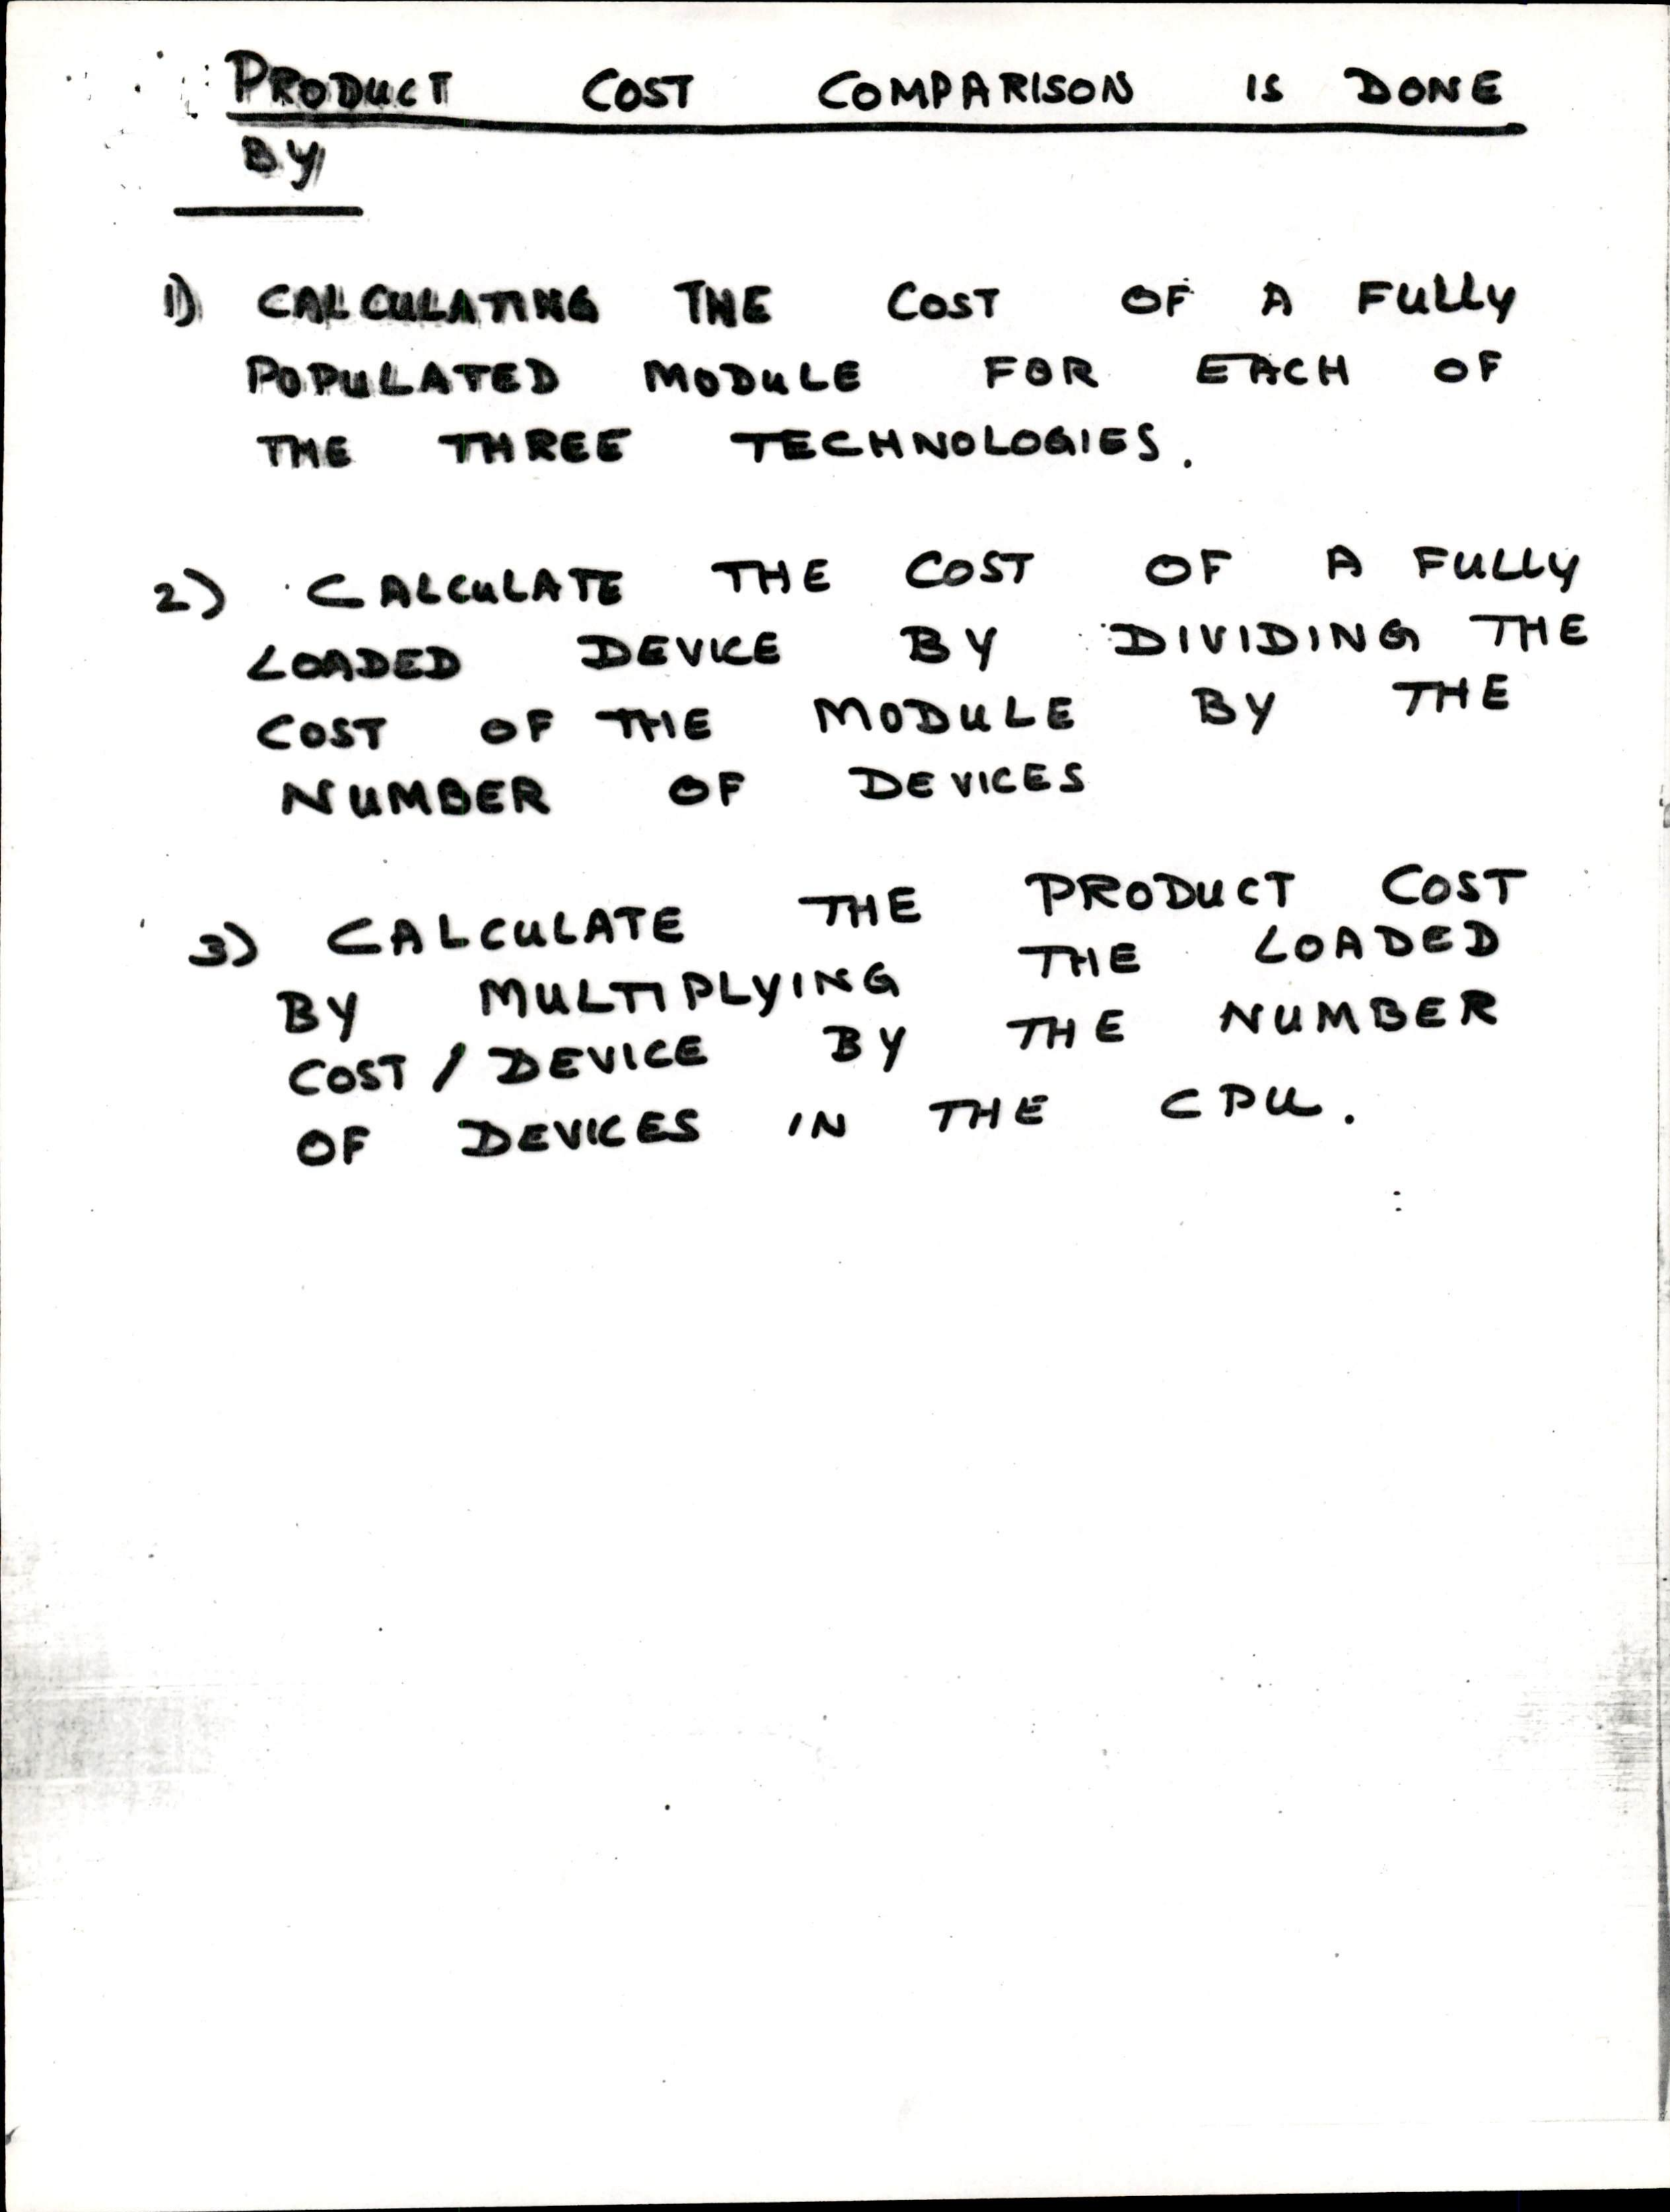 PRODUCT COST COMPARISON IS DONE
BY
1) CALCULATING THE COST OF A FULLY
POPULATED MODULE FOR EACH OF
THE THREE TECHNOLOGIES.
2) CALCULATE THE COST OF A FULLY
LOADED DEVICE BY DIVIDING THE
COST OF THE MODULE BY THE
NUMBER OF DEVICES
3) CALCULATE THE PRODUCT COST
BY MULTIPLYING THE LOADED
COST / DEVICE BY THE NUMBER
OF DEVICES IN THE CPU.